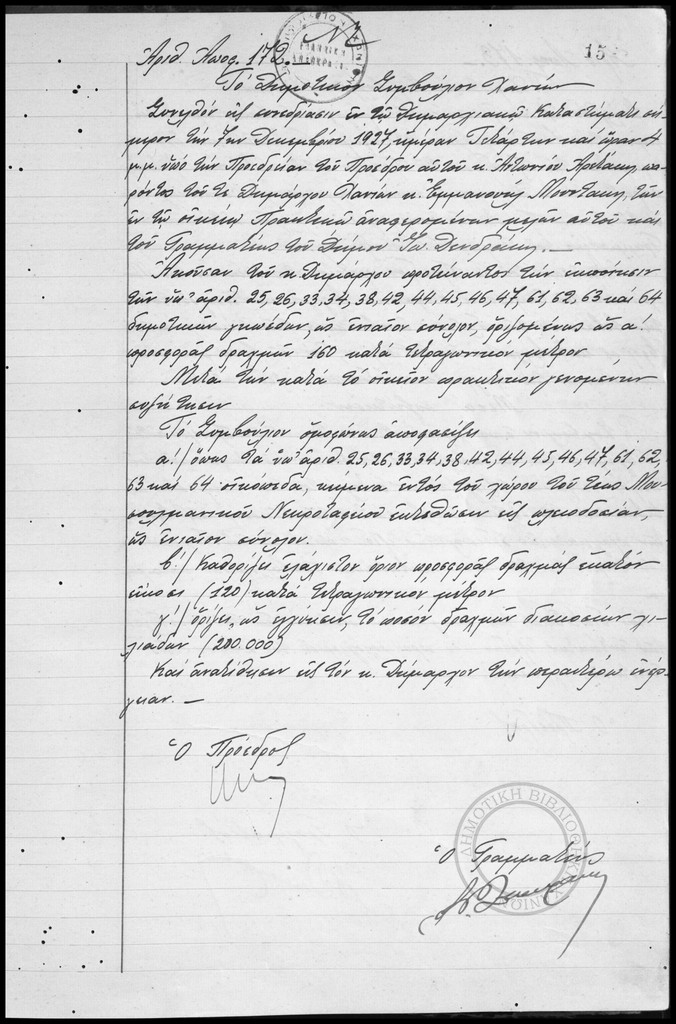 Ἀριθ. Ἀποφ. 172.
15
Τὸ Δημοτικὸν Συμβούλιον Χανίων
Συνελθὸν εἰς συνεδρίασιν ἐν τῷ Δημαρχιακῷ Καταστήματι σή-
μερον τὴν 7ην Δεκεμβρίου 1927, ἡμέραν Τετάρτην καὶ ὥραν 4
μ.μ. ὑπὸ τὴν Προεδρείαν τοῦ Προέδρου αὐτοῦ κ. Ἀντωνίου πα-
ρόντος τοῦ τε Δημάρχου Χανίων κ. Ἐμμανουὴλ Μουντάκη, τῶν
ἐν τῷ οἰκείῳ Πρακτικῷ ἀναφερομένων μελῶν αὐτοῦ καὶ
τοῦ Γραμματέως τοῦ Δήμου Ἰω. Δενδρινοῦ. —
Ἀκοῦσαν τοῦ κ. Δημάρχου προτείναντος τὴν ἐκποίησιν
τῶν ὑπ' ἀριθ. 25, 26, 33, 34, 38, 42, 44, 45, 46, 47, 61, 62, 63 καὶ 64
δημοτικῶν γηπέδων, ὡς ἑνιαῖον σύνολον, ὁριζομένης ὡς α!
προσφορᾶς δραχμῶν 160 κατὰ τετραγωνικὸν μέτρον
Μετὰ τὴν κατὰ τὸ οἰκεῖον πρακτικὸν γενομένην
συζήτησιν
Τὸ Συμβούλιον ὁμοφώνως ἀποφασίζει
α!/ ὅπως τὰ ὑπ' ἀριθ. 25, 26, 33, 34, 38, 42, 44, 45, 46, 47, 61, 62,
63 καὶ 64 οἰκόπεδα, κείμενα ἐντὸς τοῦ χώρου τοῦ τέως Μου-
σουλμανικοῦ Νεκροταφείου ἐκτεθῶσιν εἰς πλειοδοσίαν,
ὡς ἑνιαῖον σύνολον.
β!/ Καθορίζει ἐλάχιστον ὅριον προσφορᾶς δραχμὰς ἑκατὸν
εἴκοσι (120) κατὰ τετραγωνικὸν μέτρον
γ!/ ὁρίζει, ὡς ἐγγύησιν, τὸ ποσὸν δραχμῶν διακοσίων χι-
λιάδων (200.000)
Καὶ ἀνατίθησιν εἰς τὸν κ. Δήμαρχον τὴν περαιτέρω ἐνέρ-
γειαν. —
Ὁ Πρόεδρος
ΔΗΜΟΤΙΚΗ ΒΙΒΛΙΟΘΗΚΗ ΧΑΝΙΩΝ
Ὁ Γραμματεὺς